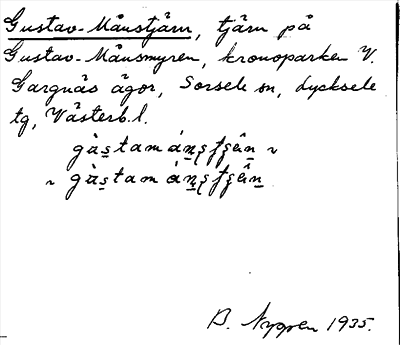 Gustav-Månstjärn, tjärn på
Gustav-Månsmyren, kronoparken V.
Gargnäs ägor, Sorsele sn, Lycksele
tg, Västerb.l.
gùs̱tam áṉşfşêäṉ ~
~ gùs̱tam áṉşfşêäṉ
B. Nygren 1935.